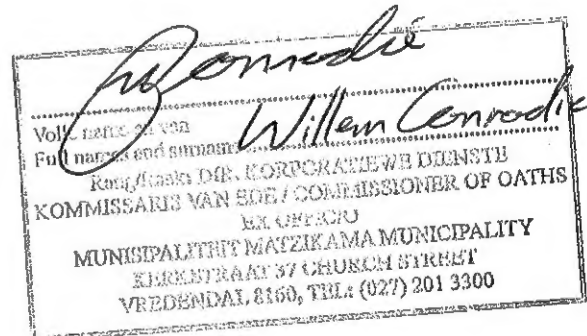 WConradie
Volle name en van
Full names and surname Willem Conradie
Rang/Rank: DIR. KORPORATIEWE DIENSTE
KOMMISSARIS VAN EDE / COMMISSIONER OF OATHS
EX OFFICIO
MUNISIPALITEIT MATZIKAMA MUNICIPALITY
KERKSTRAAT 37 CHURCH STREET
VREDENDAL 8160, TEL: (027) 201 3300